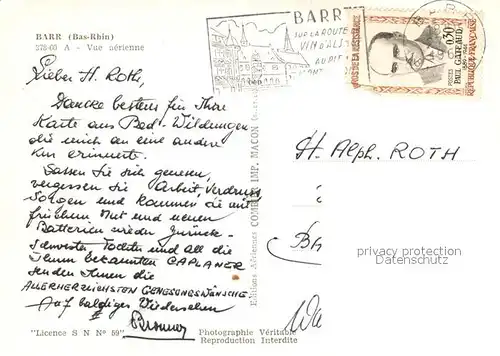 BARR (Bas-Rhin)
278-60 A - Vue aérienne
BARR
SUR LA ROUTE
VIN D'AL
AU PIT
MONT
HÉROS DE LA RÉSISTANCE
POSTES 0,30
PAUL GATEAUD
RÉPUBLIQUE FRANÇAISE
Lieber H. Roth,
Dancke bestens für Ihre
Karte aus Bad-Wildungen
die mich an eine andere
Kur erinnerte.
Lassen Sie sich genesen,
vergessen Sie Arbeit, Verdruss
Sorgen und kommen Sie mit
frischem Mut und neuen
Batterien wieder zurück-
Schwester Tochter und all die
Ihnen bekannten CAPLANER
senden Ihnen die
ALLERHERZLICHSTEN GENESUNGSWÜNSCHE
Auf baldiges Wiedersehen
Editions Aériennes COMBIER IMP. MACON
H. Alph. ROTH
Ba
privacy protection
Datenschutz
Wa
"Licence S N N° 59"
Photographie Véritable
Reproduction Interdite